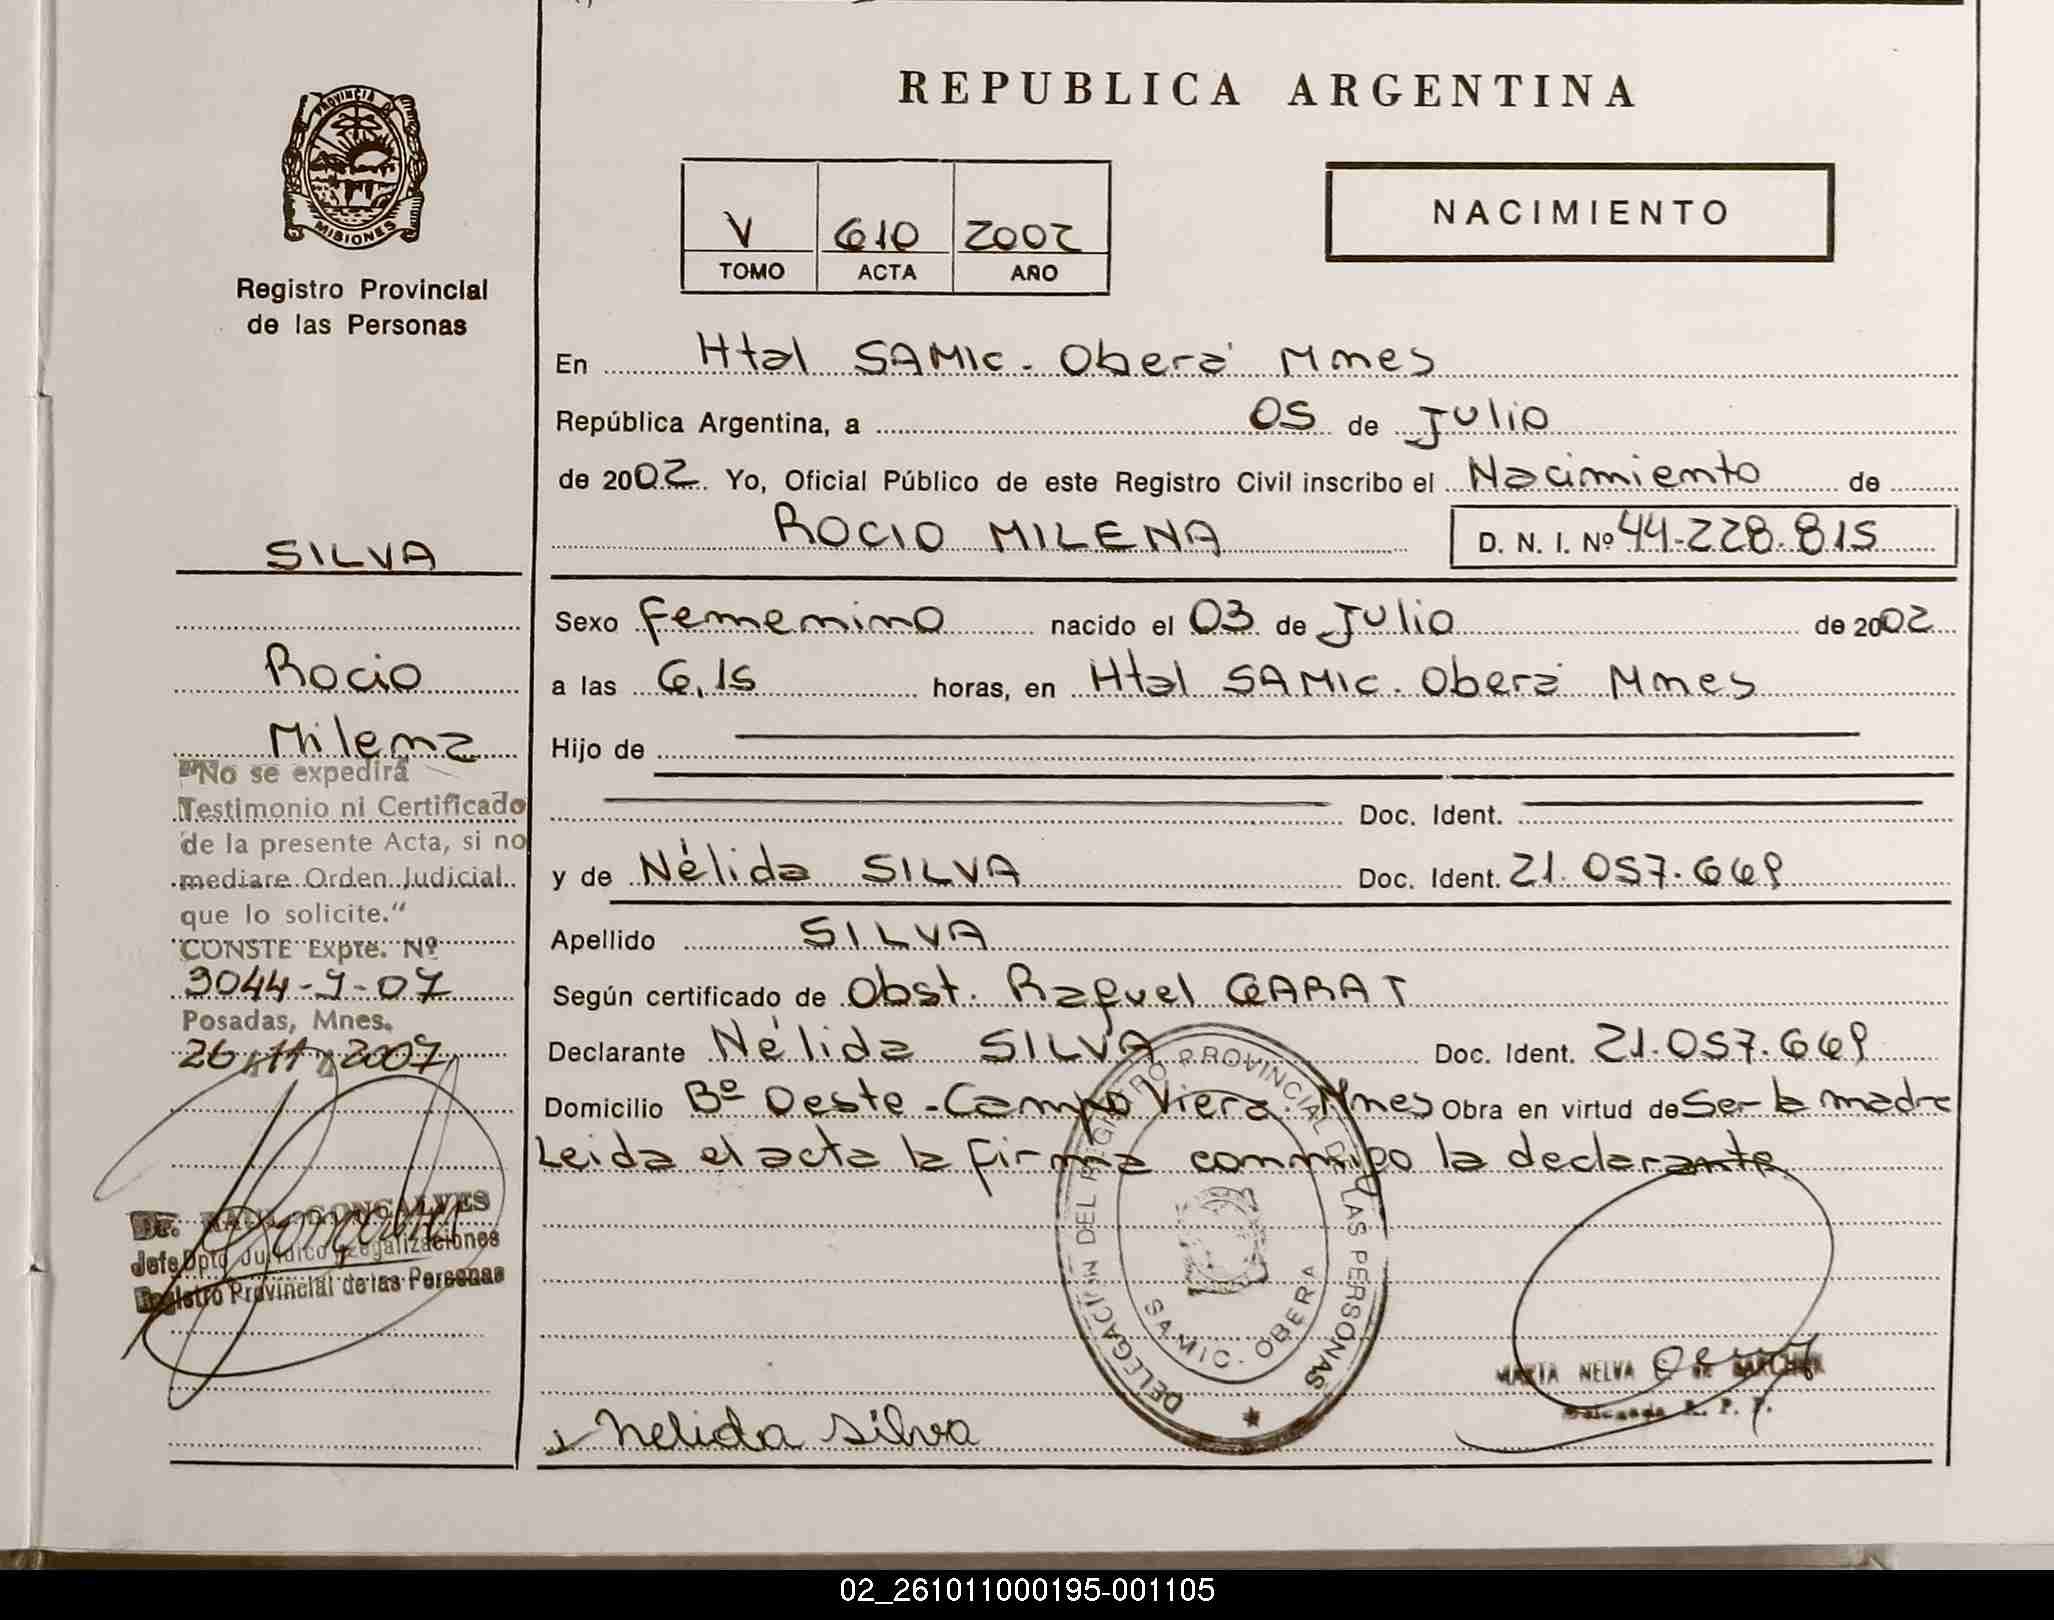 REPUBLICA ARGENTINA
PROVINCIA DE
MISIONES
Registro Provincial
de las Personas
V 610 2002
TOMO ACTA AÑO
NACIMIENTO
En Htal SAMIC. Oberá Mnes
República Argentina, a 05 de Julio
de 2002. Yo, Oficial Público de este Registro Civil inscribo el Nacimiento de
ROCIO MILENA D. N. I. Nº 44.228.815
Sexo femenino nacido el 03 de Julio de 2002
a las 6,15 horas, en Htal SAMIC. Oberá Mnes
Hijo de
Doc. Ident.
y de Nélida SILVA Doc. Ident. 21.057.669
Apellido SILVA
Según certificado de Obst. Raquel GARAT
Declarante Nélida SILVA Doc. Ident. 21.057.669
Domicilio Bº Oeste - Campo Viera. Mnes Obra en virtud de Ser la madre
Leida el acta la firma conmigo la declarante
DELEGACIÓN DEL REGISTRO PROVINCIAL DE LAS PERSONAS
SAMIC. OBERA
Nelida Silva
MARIA NELVA
R. P. P.
SILVA
Rocio
Milena
"No se expedirá
Testimonio ni Certificado
de la presente Acta, si no
mediare Orden Judicial
que lo solicite."
CONSTE Expte. Nº
3044-9-07
Posadas, Mnes.
26 11 2007
Dr. GONCALVES
Jefe Dpto Jurídico y Legalizaciones
Registro Provincial de las Personas
02_261011000195-001105